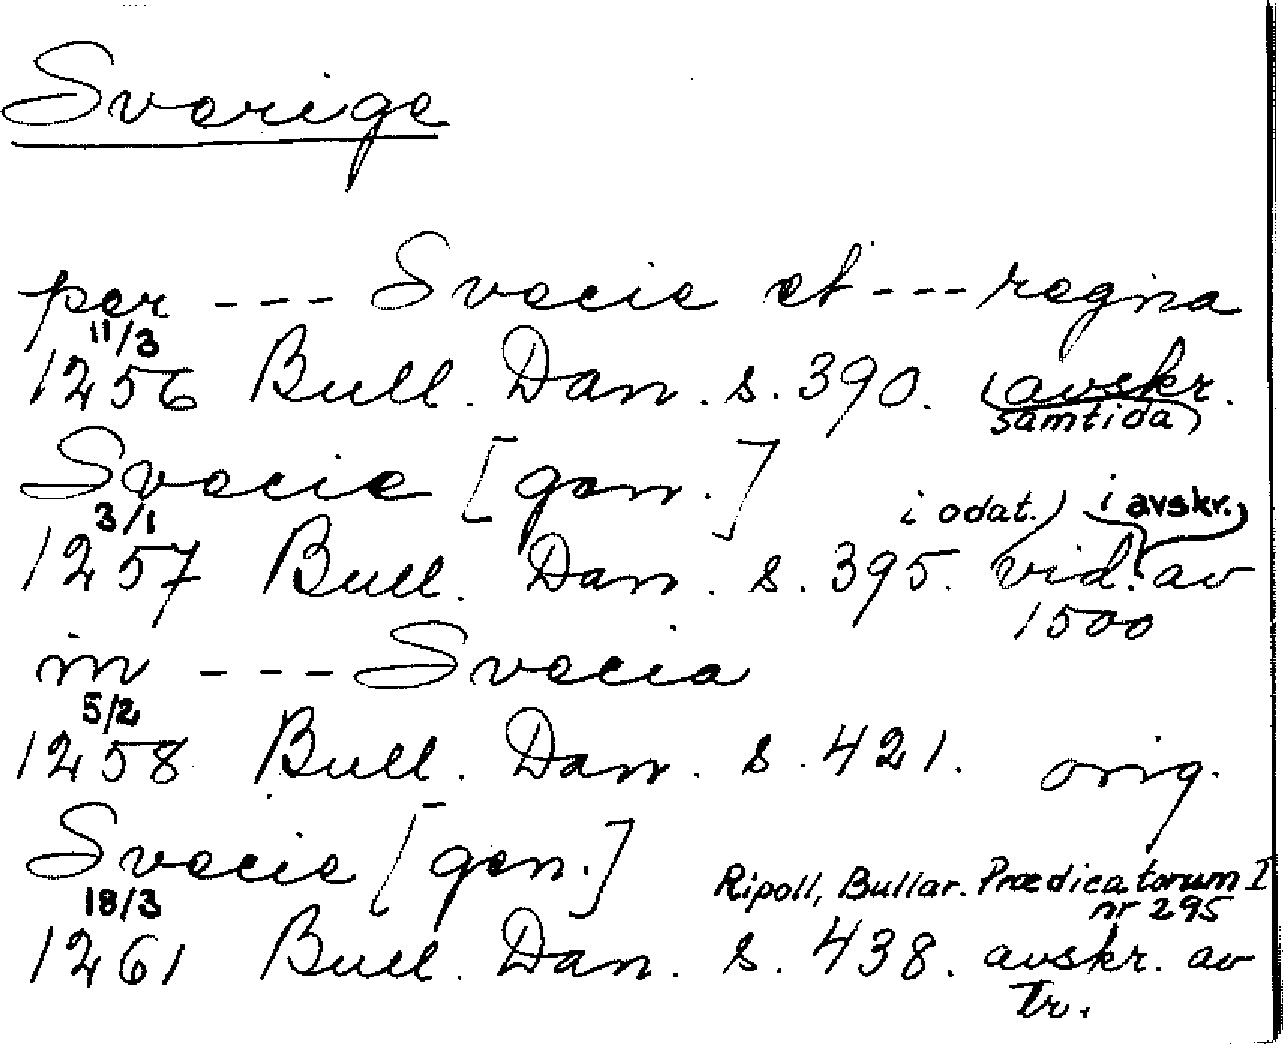 Sverige
per --- Svecie et --- regna
11/3
1256 Bull. Dan. s. 390. (avskr.
samtida)
Svecie [gen.]
3/1
i odat.) i avskr.)
1257 Bull. Dan. s. 395. vid. av
1500
in --- Svecia
5/2
1258 Bull. Dan. s. 421. orig.
Svecie [gen.]
Ripoll, Bullar. Prædicatorum I
18/3
nr 295
1261 Bull. Dan. s. 438. avskr. av
Tr.